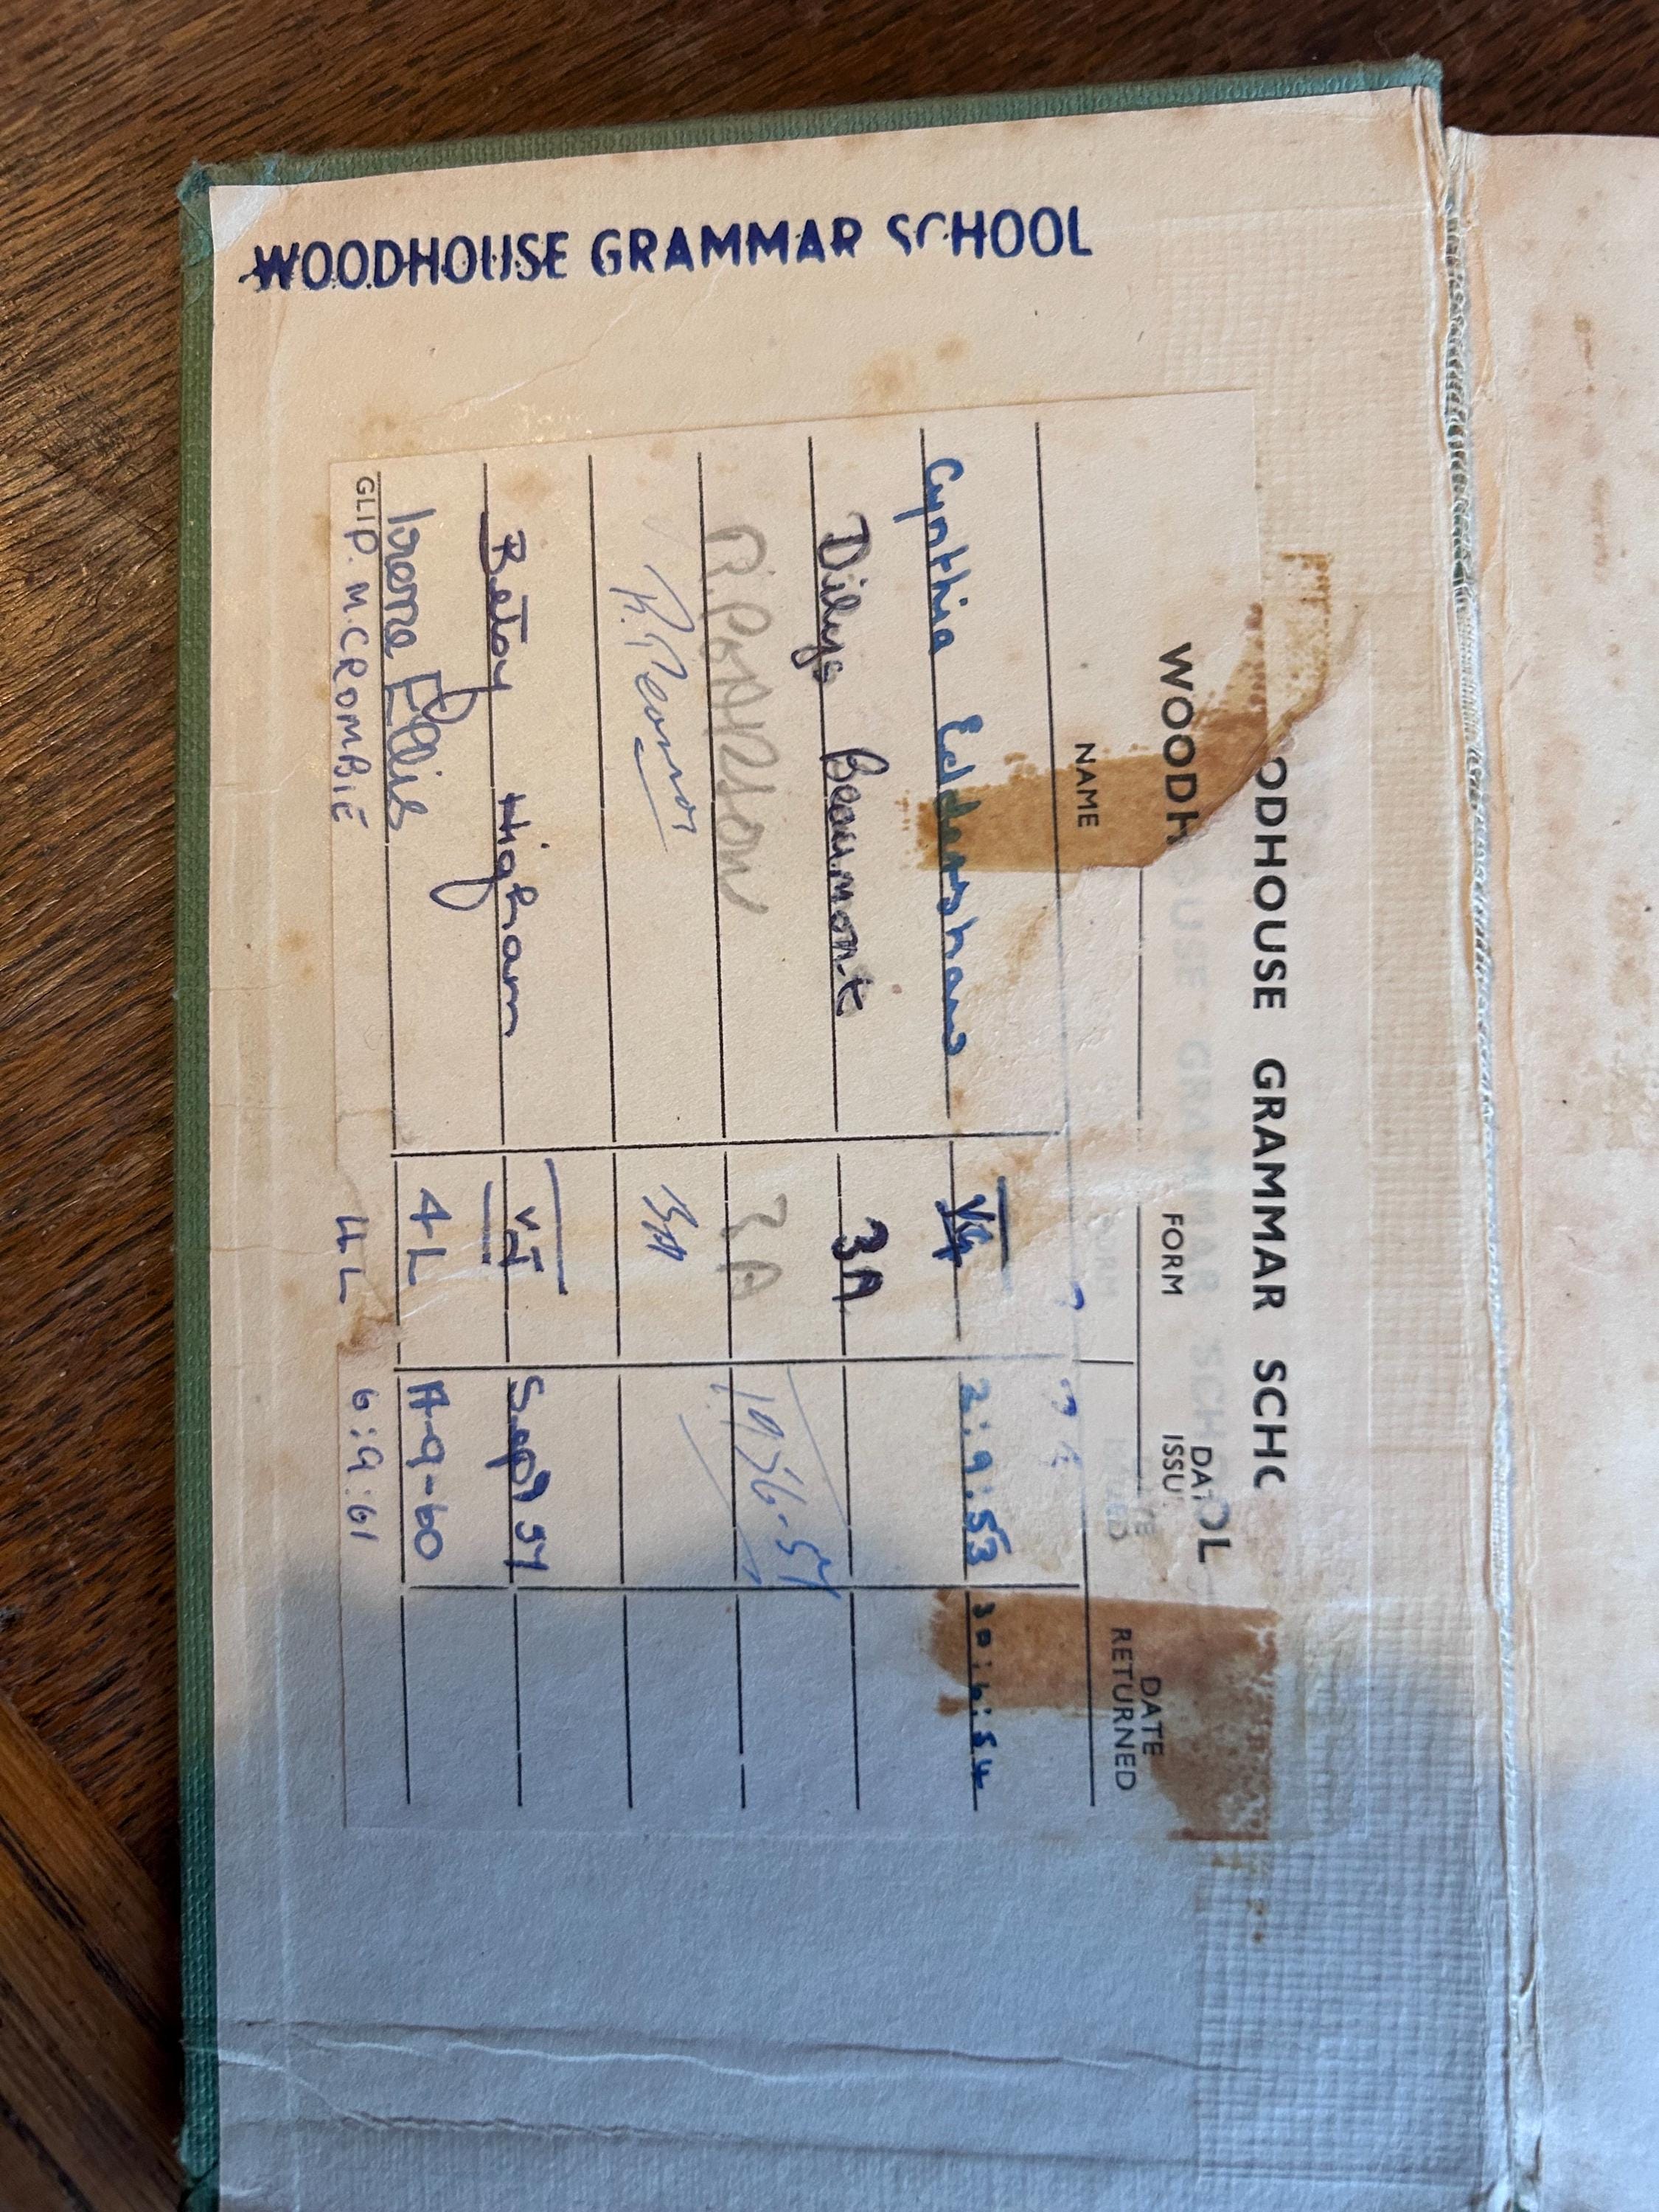 WOODHOUSE GRAMMAR SCHOOL
ODHOUSE GRAMMAR SCHO
WOODH OUSE GRAMMAR SCHOOL
NAME FORM DATE ISSUED DATE RETURNED
Cynthia Eddershaw 2:9:53 30:6:54
Dilys Beaumont 3A
R. PEARSON 3A 1956-57
R. Pearson 3A
Betsy Higham VI Sept 57
Irene Ellis 4L 9-60
P. M. CROMBIE 4L 6:9:61
GL